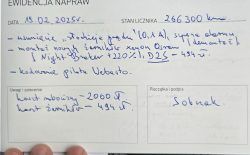 EWIDENCJA NAPRAW
DATA 19.02.2025r. STAN LICZNIKA 266 300 km
- usunięcie „złodzieja prądu" (0,1A), sygnał
- montaż nowych żarników xenon Osram (demontaż
(Night Breaker +220%), D2S - 494 zł
- kodowanie pilota Webasto.
Uwagi i zalecenia Pieczątka i podpis
koszt robocizny - 2000 zł
koszt żarników - 494 zł